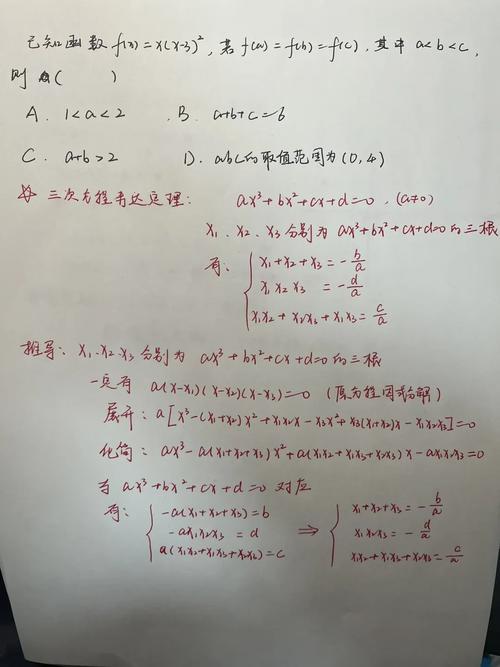 已知函数 f(x)=x(x-3)², 若 f(a)=f(b)=f(c), 其中 a<b<c,
则 ( )
A. 1<a<2 . B. a+b+c=6
C. a+b>2 D. abc的取值范围为(0,4)
☆ 三次方程韦达定理: ax³+bx²+cx+d=0 , (a≠0)
x₁、x₂、x₃ 分别为 ax³+bx²+cx+d=0 的三根
有: { x₁+x₂+x₃ = -b/a
x₁x₂x₃ = -d/a
x₁x₂+x₂x₃+x₁x₃ = c/a
推导: x₁、x₂、x₃ 分别为 ax³+bx²+cx+d=0 的三根
一定有 a(x-x₁)(x-x₂)(x-x₃)=0 (原方程因式分解)
展开: a[x³-(x₁+x₂)x²+x₁x₂x-x₃x²+x₃(x₁+x₂)x-x₁x₂x₃]=0
化简: ax³-a(x₁+x₂+x₃)x²+a(x₁x₂+x₁x₃+x₂x₃)x-ax₁x₂x₃=0
与 ax³+bx²+cx+d=0 对应
有: { -a(x₁+x₂+x₃)=b ⇒ { x₁+x₂+x₃=-b/a
-ax₁x₂x₃ = d x₁x₂x₃ = -d/a
a(x₁x₂+x₁x₃+x₂x₃)=c x₁x₂+x₁x₃+x₂x₃=c/a